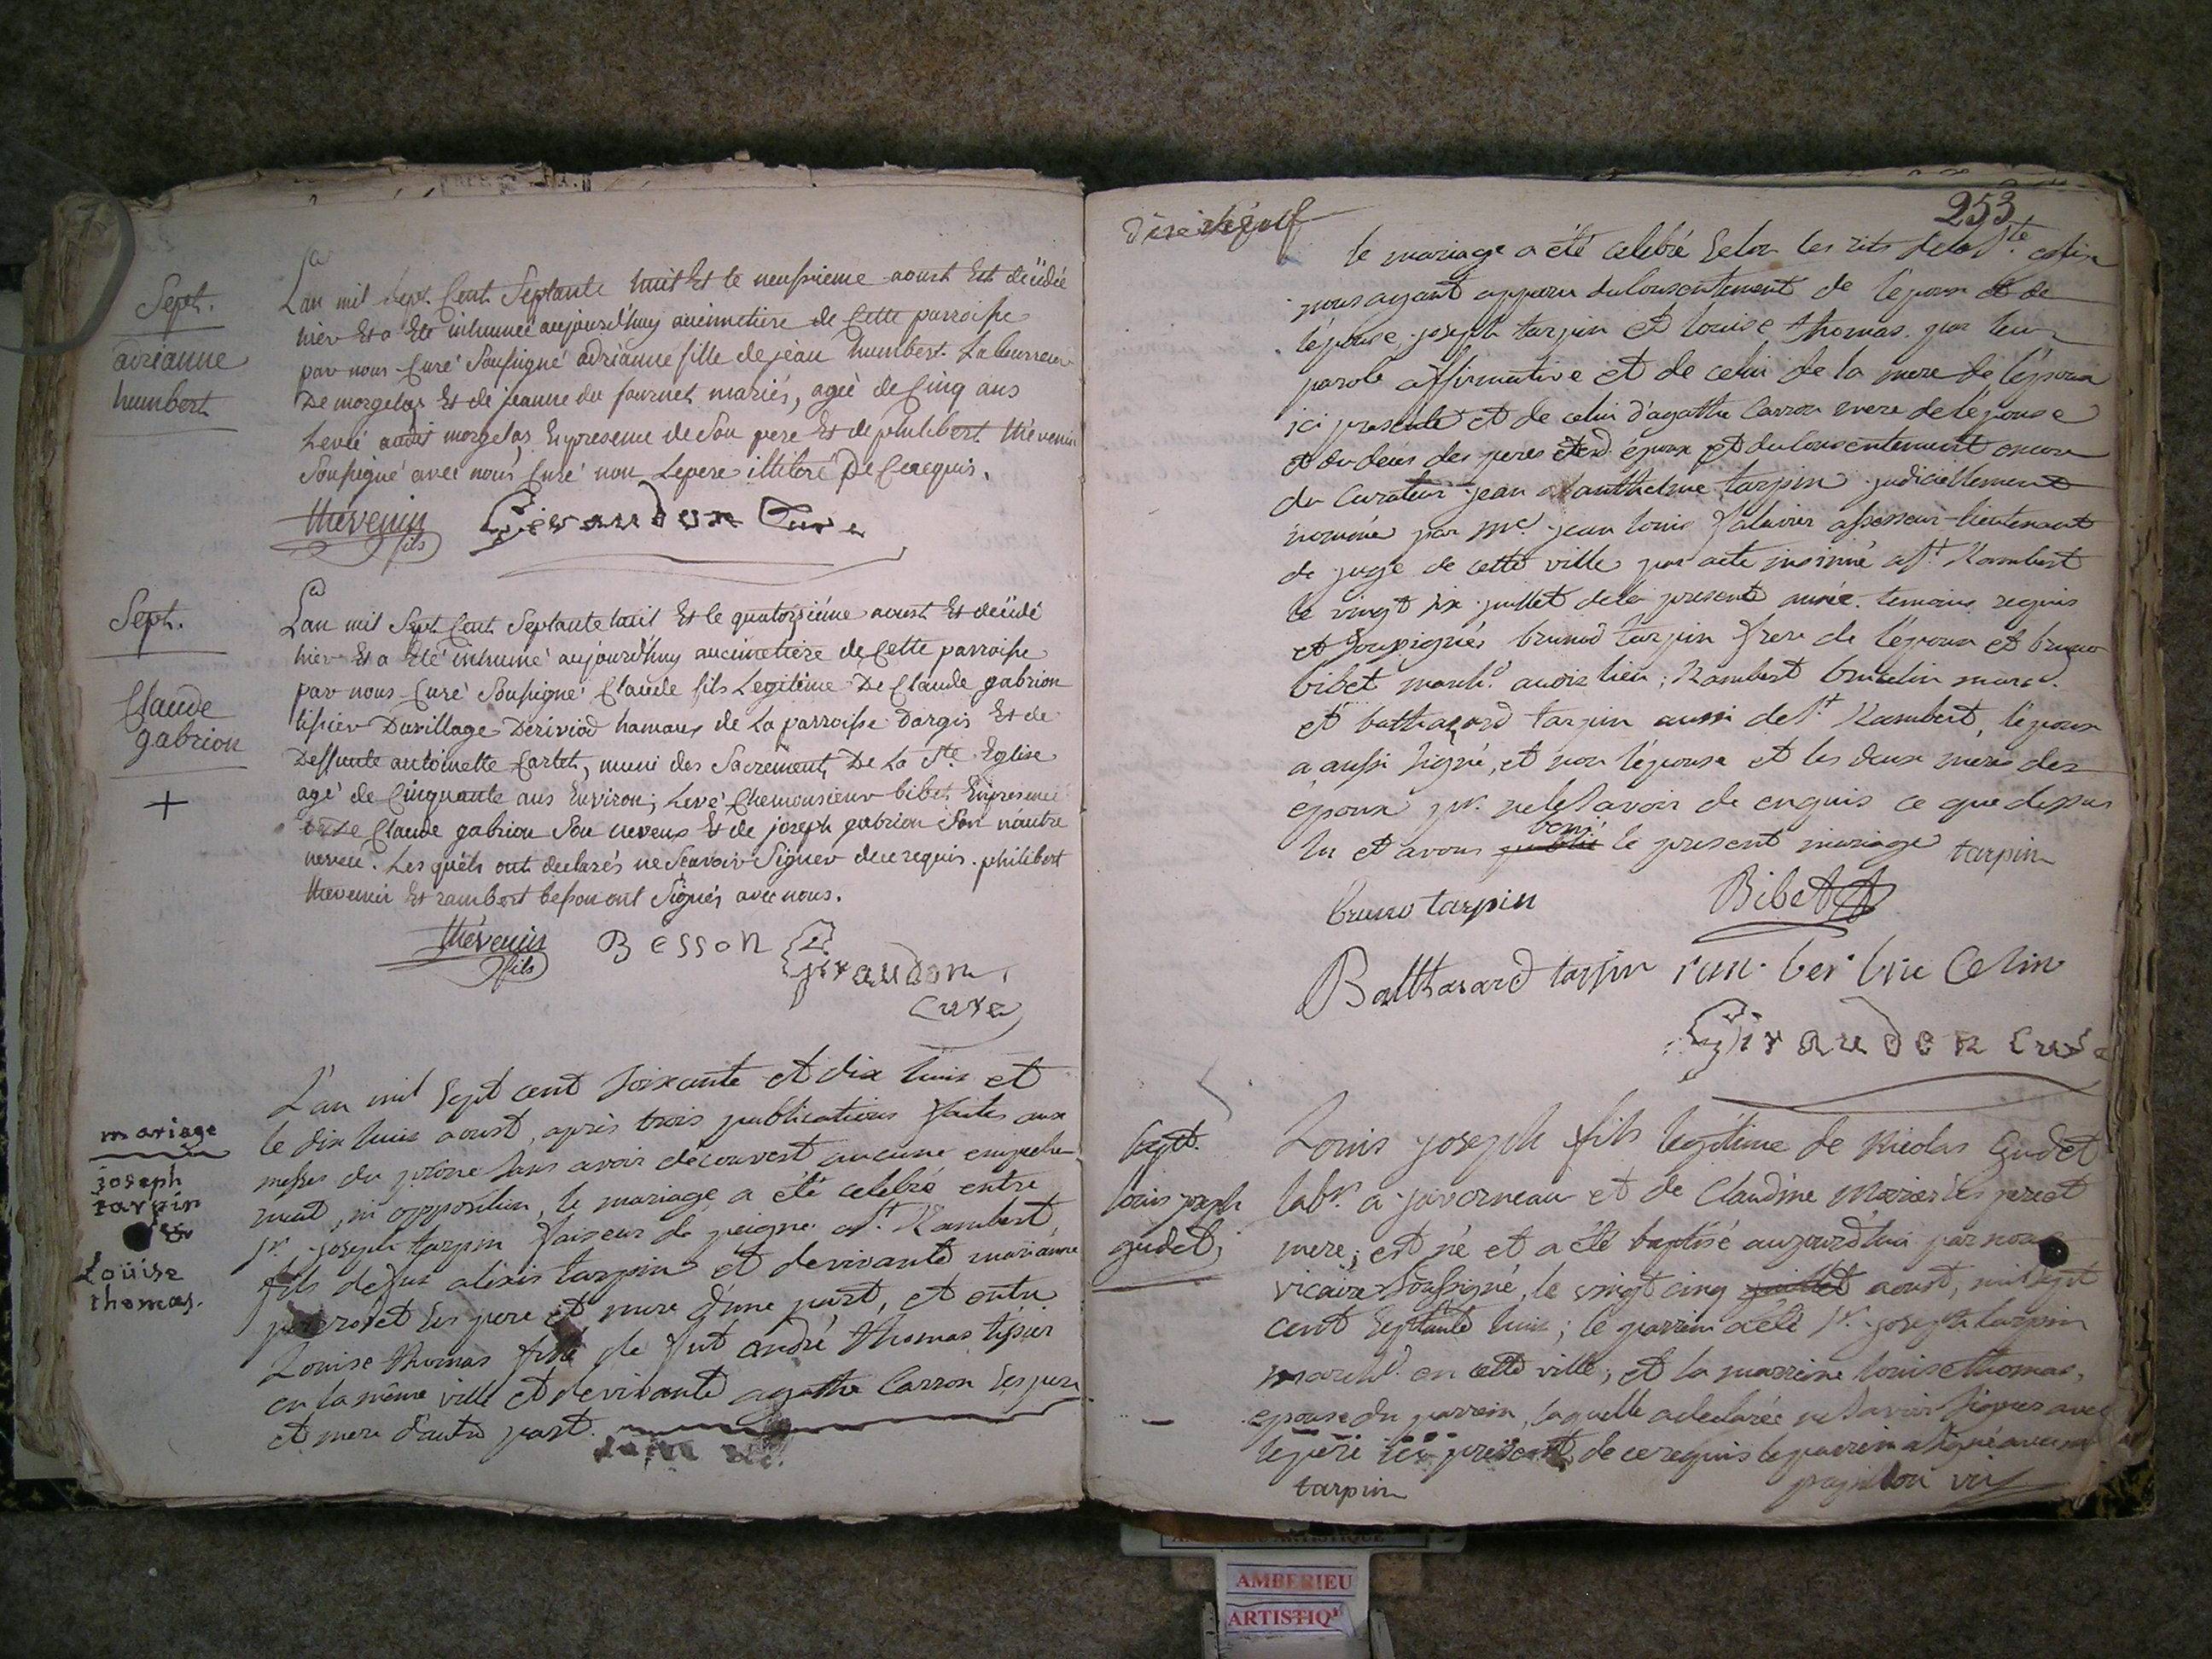 Sept.
adrianne
humbert
Lan mil Sept Cent Septante huit Et le neufvieme aoust Est decédée
hier Et a Eté inhumée aujourd'huy au cimetiere de Cette parroisse
par nous Curé Soussigné adrianne fille de jean humbert Laboureur
De morgelas Et de jeanne du fournet mariés, agée de Cinq ans
Levée audit morgelas, En presence de Son pere Et de philibert thévenin
Soussigné avec nous Curé non Le pere illiteré De Ce requis.
thévenin fils Giraudon Curé
Sept.
Claude
gabrion
+
Lan mil Sept Cent Septante huit Et le quatorzième aoust Est decédé
hier Et a Eté inhumé aujourd'huy au cimetiere de Cette parroisse
par nous Curé Soussigné Claude fils Legitime De Claude gabrion
tissier Du village Deriviod hamaux de La parroisse Dargis Et de
Deffunte antoinette Cartet, muni des Sacrements De La Ste Eglise
agé de Cinquante ans Environ; Levé Chez monsieur bibet En presence
de Claude gabrion Son neveux Et de joseph gabrion Son nautre
neveu. Les quels ont declarés ne Scavoir Signer de ce requis. philibert
thevenin Et rambert besson ont Signés avec nous.
thévenin fils Besson Giraudon
Curé
mariage
joseph
tarpin
&
Loüise
thomas.
L'an mil Sept cent Soixante et dix huit et
le dix huit aoust, après trois publications faites aux
messes du prône sans avoir decouvert aucune empeche-
ment, ni opposition, le mariage a été celebré entre
Sr. joseph tarpin faiseur de peigne a St. Rambert,
fils de fut alexis tarpin et de vivante marianne
ses pere et mere d'une part, et entre
Louise thomas fille de fut andré thomas tissier
en la même ville et de vivante agathe Carron ses pere
et mere d'autre part.
253
le mariage a été celebré Selon les rits de la Ste. eglise
nous ayant apparu du Consentement de l'epoux et de
l'épouse, joseph tarpin et louise thomas par leur
parole affirmative et de celui de la mere de l'époux
ici presente et de celui d'agathe Carron mere de l'épouse
et du décès des peres desd. époux et du Consentement encore
du Curateur jean anthelme tarpin judiciellement
nommé par Mc. jean louis assesseur lieutenant
de juge de cette ville par acte insinué a St. Rambert
le vingt six juillet de la presente année. temoins requis
et soussignés bruno tarpin frere de l'époux et bruno
bibet march.d audit lieu; Rambert
et balthazard tarpin aussi de St. Rambert, l'époux
a aussi signé, et non l'épouse et les deux meres des
époux pr. ne le Savoir de enquis ce que dessus
lu et avons publié beni le present mariage tarpin
bruno tarpin Bibet
Balthasard tarpin
Giraudon Curé
bapt.
louis joseph
gudet,
Louis joseph fils legitime de Nicolas Gudet
labr. a javorneau et de Claudine ses pere et
mere; est né et a été baptisé aujourd'hui par nous
vicaire Soussigné, le vingt cinq juillet aoust, mil sept
cent Septante huit; le parrein a été Sr. joseph tarpin
march.d en cette ville; et la marreine louise thomas,
epouse du parrein, laquelle a declarée ne Savoir Signer avec
le pere ici present, de ce requis le parrein a signé avec nous
tarpin papillon vic
AMBERIEU
ARTISTIQ